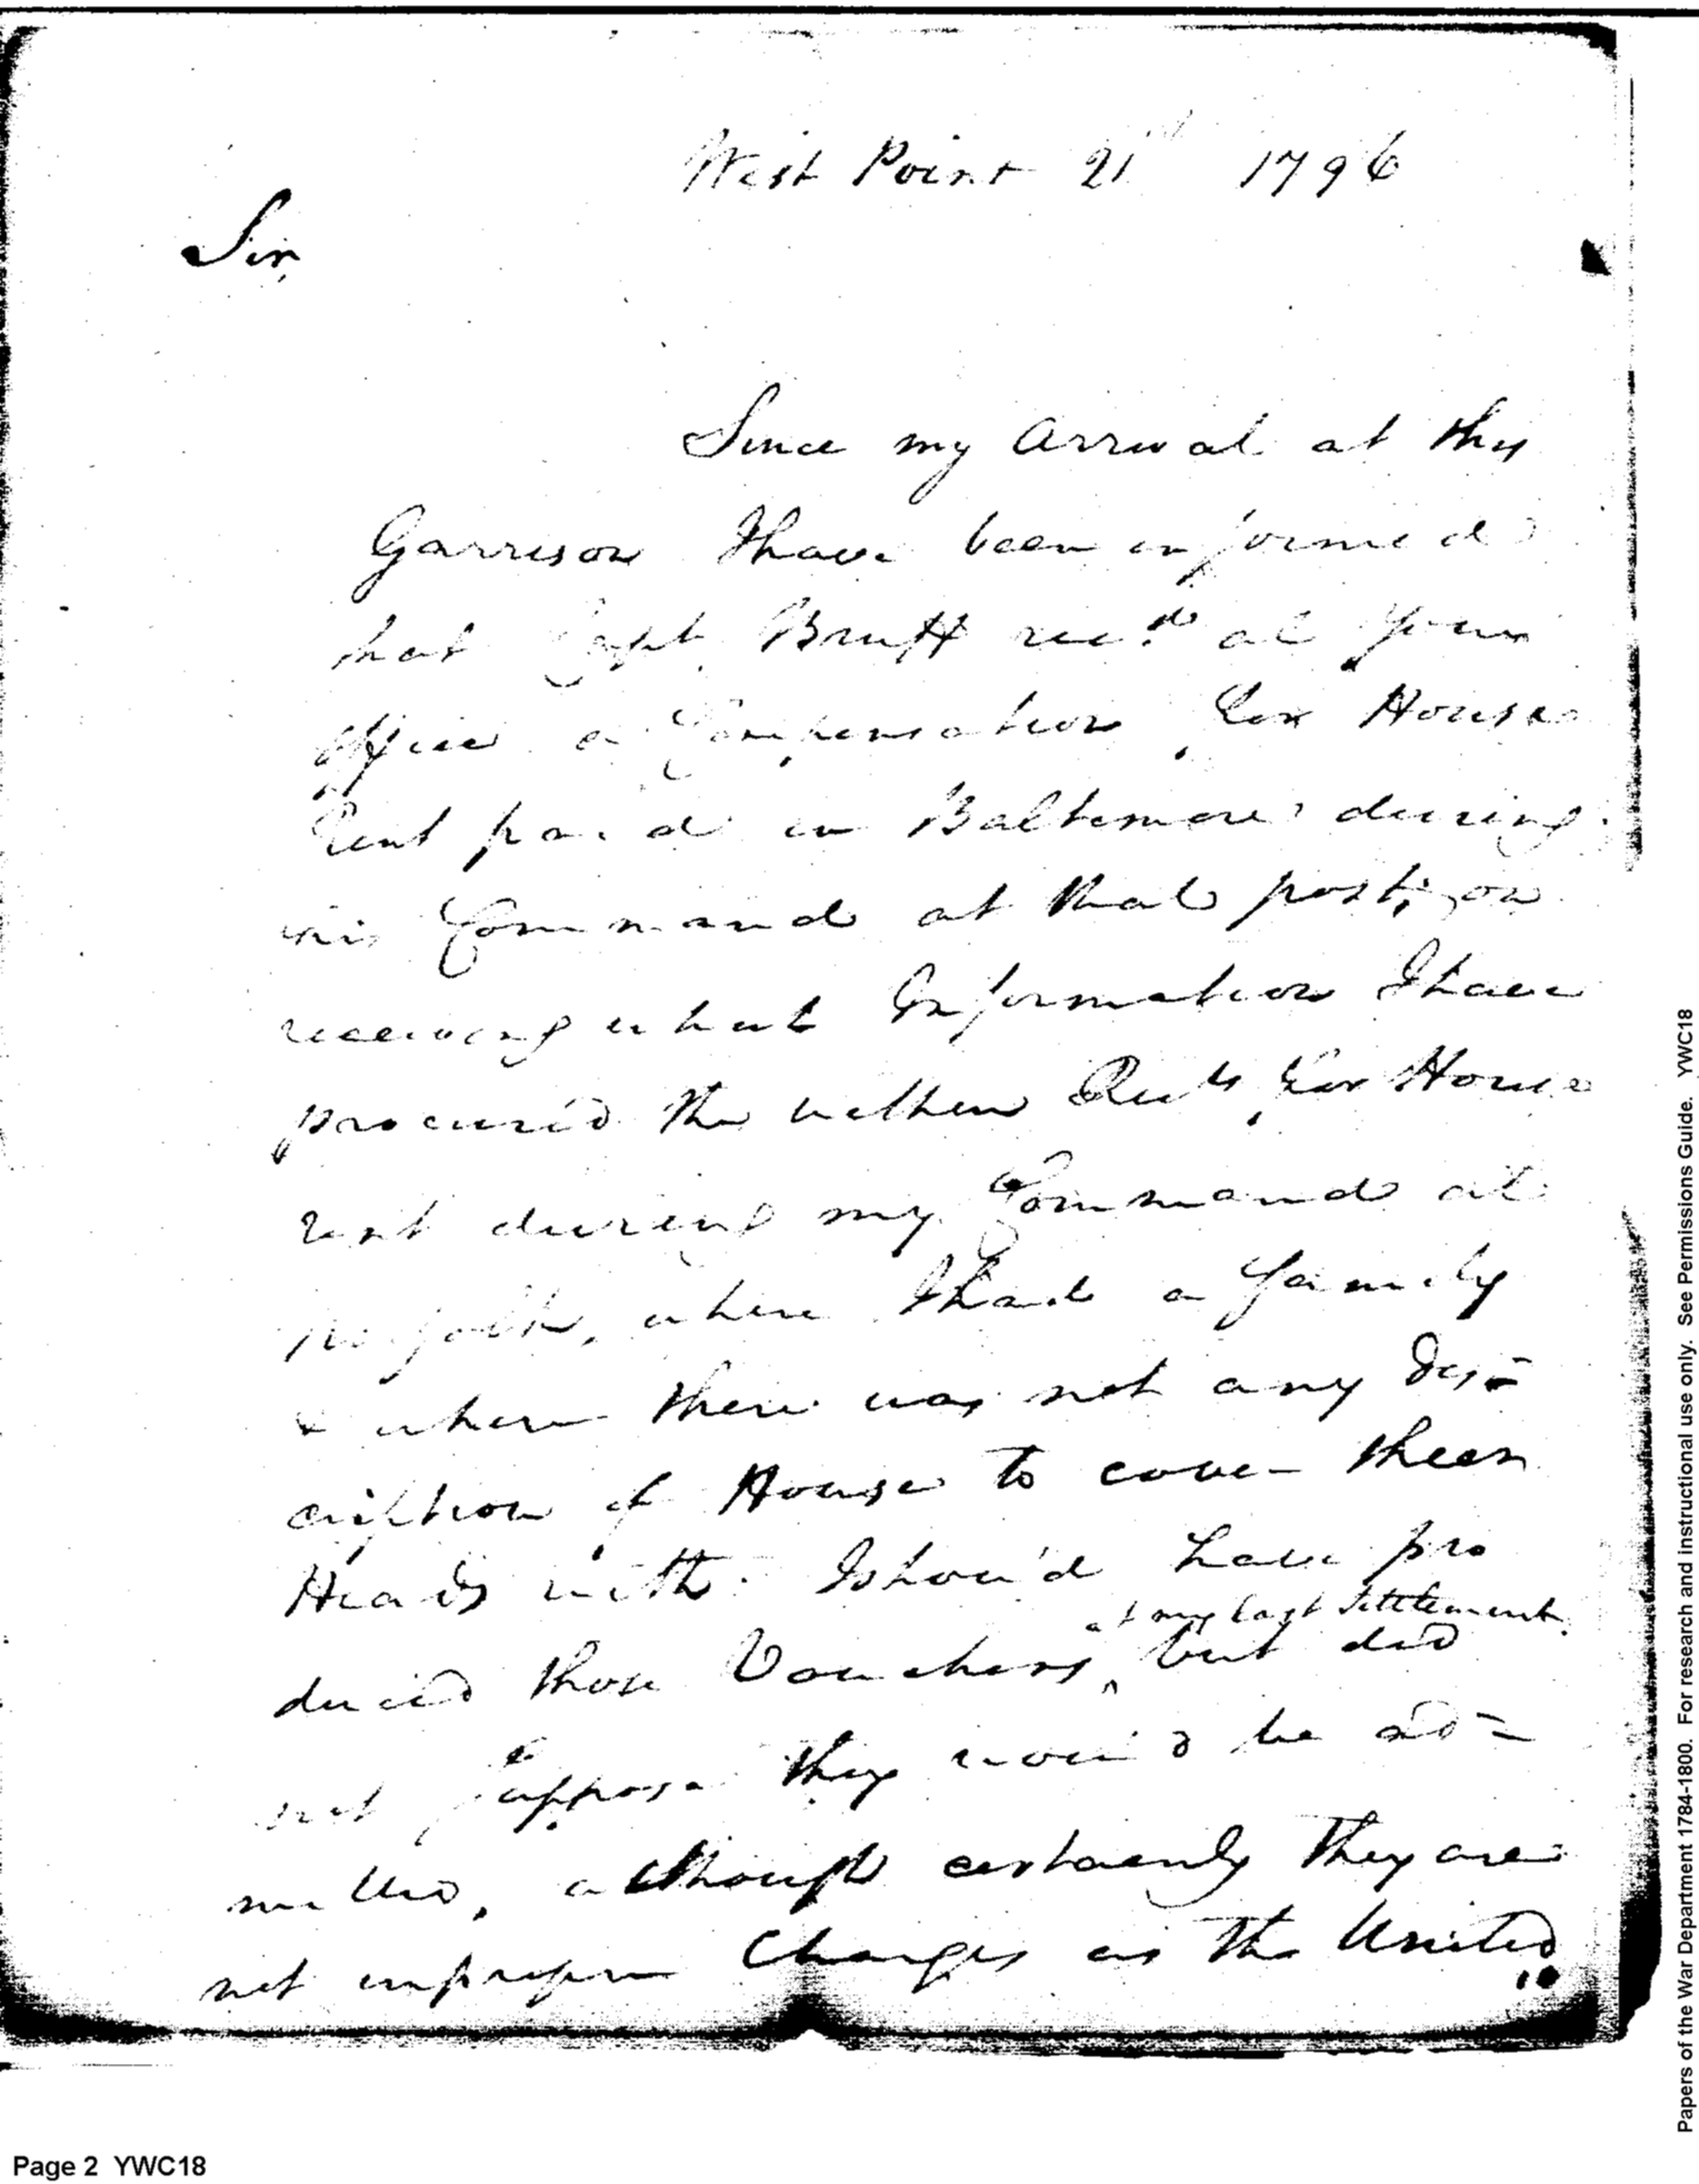 West Point 21st 1796
Sir,
Since my Arrival at this
Garrison I have been informed
that Capt. Bruff recd. at your
office a Compensation for House
Rent paid in Baltimore during
his Command at that post, on
receiving what Information I have
procured the within Rects. for House
rent during my Command at
Norfolk, where I had a family
& where there was not any Des=
cription of House to cover their
Heads with. I shou'd have pro
at my last Settlement
duced those Vouchers, ^ but did
not suppose they wou'd be ad=
mitted, although certainly they are
not improper Charges as the United
Page 2 YWC18
Papers of the War Department 1784-1800. For research and instructional use only. See Permissions Guide. YWC18